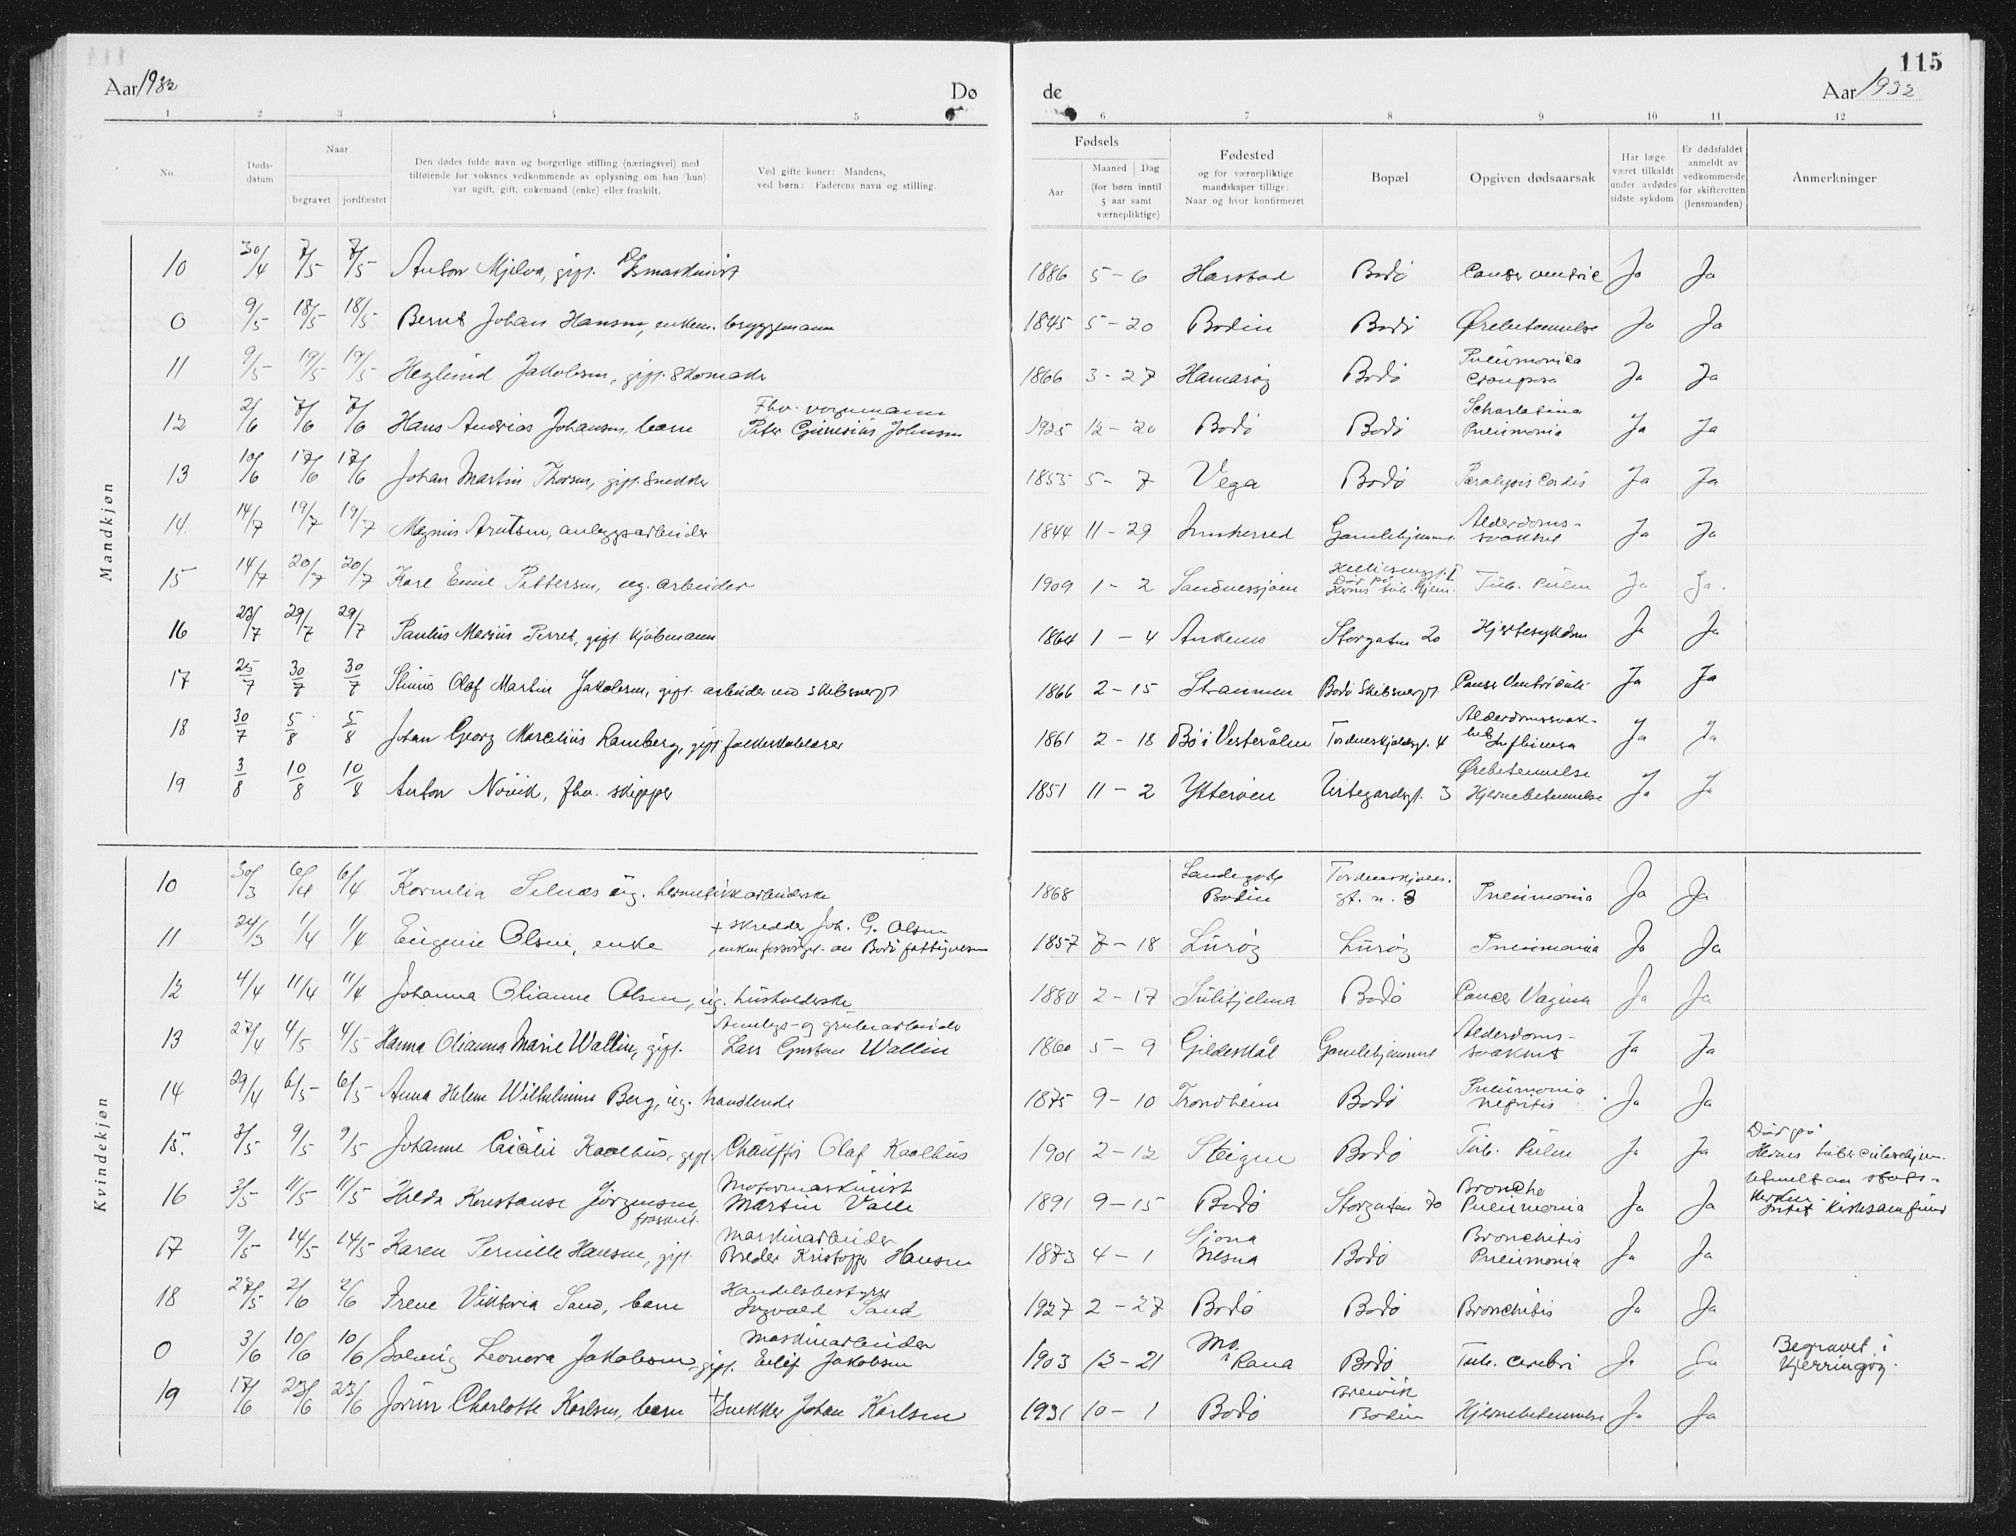 115
Aar 1932
Dø
de
Aar 1932
1 2 3 4 5
6 7 8 9 10 11 12
No.
Døds-
datum
Naar
begravet jordfæstet
Den dødes fulde navn og borgerlige stilling (næringsvei) med
tilføiende for voksnes vedkommende av oplysning om han (hun)
var ugift, gift, enkemand (enke) eller fraskilt.
Ved gifte koner: Mandens,
ved børn: Faderens navn og stilling.
Fødsels
Aar
Maaned Dag
(for børn inntil
5 aar samt
værnepliktige)
Fødested
og for værnepliktige
mandskaper tillige:
Naar og hvor konfirmeret
Bopæl
Opgiven dødsaarsak
Har læge
været tilkaldt
under avdødes
sidste sykdom
Er dødsfaldet
anmeldt av
vedkommende
for skifteretten
(lensmanden)
Anmerkninger
Mandkjøn
10 30/4 7/5 7/5 Anton Mjelva, gift. D/S maskinist 1886 5-6 Harstad Bodø Cancer ventric Ja Ja
0 9/5 18/5 18/5 Bernt Johan Hansen, enkem. bryggemann 1845 5-20 Bodin Bodø Ørebetennelse Ja Ja
11 9/5 19/5 19/5 Jakobsen, gift. Skomaker 1866 3-27 Hamarøy Bodø Pneumonica crouposa Ja Ja
12 2/6 7/6 7/6 Hans Andreas Johansen, barn Fhv. vognmann Peter Johnsen 1925 12-20 Bodø Bodø Scharlatina Pneumonia Ja Ja
13 10/6 17/6 17/6 Johan Martin Thorsen, gift. Snekker 1853 5-7 Vega Bodø Paralysis Cordis Ja Ja
14. 14/7 19/7 19/7 Magnus Arntsen, anleggsarbeider 1844 11-29 Innherred Gamlehjemmet Alderdoms-svakhet Ja Ja
15 14/7 20/7 20/7 Karl Emil Pettersen, ug. arbeider 1909 1-2 Sandnessjøen Død på Hernes tub. hjem. Tub. Pulm Ja Ja.
16 23/7 29/7 29/7 Paulus Marius Perret, gift kjøbmann 1864 1-4 Storgaten 20 Hjertesykdom Ja Ja
17 25/7 30/7 30/7 Olaf Martin Jakobsen, gift. arbeider ved skibsverft 1866 2-15 Straumen Bodø Skibsverft. Cancer Ventriculi Ja Ja
18 30/7 5/8 5/8 Johan Georg Marcelius Ramberg, gift folkeskolelærer 1861 2-18 Bø i Vesterålen Tordenskjoldsgt. 4 Alderdomssvak-het Influensa Ja Ja
19 3/8 10/8 10/8 Anton Nóvik, fhv. skipper 1851 11-2 Ytterøen Urtegardsgt. 3 Ørebetennelse Hjernebetennelse Ja Ja
Kvindekjøn
10 30/3 6/4 6/4 Kornelia Selnæs ug. hermetikkarbeiderske 1868 Landegode Bodin gt. n. 3 Pneumonia Ja Ja
11 24/3 1/4 1/4 Eugenie Olsen, enke + skredder Joh. G. Olsen enken forsørget av Bodø fattigvesen 1857 7-18 Lurøy Lurøy Pneumonia Ja Ja
12 4/4 11/4 11/4 Johanna Olianne Olsen, ug. husholderske 1880 2-17 Sulitjelma Bodø Cancer Vagina Ja Ja
13 27/4 4/5 4/5 Hanna Olianna Marie Wallin, gift. Anlegs- og grubearbeider Lars Gustav Wallin 1860 5-9 Gildeskål Gamlehjemmet Alderdoms-svakhet Ja Ja
14 29/4 6/5 6/5 Anna Helene Wilhelmine Berg, ug. handlende 1875 9-10 Trondheim Bodø Pneumonia Nefritis Ja Ja
15. 3/5 9/5 9/5 Johanne Kaalhus, gift. Chauffør Olaf Kaalhus 1901 2-12 Steigen Bodø Tub. Pulm Ja Ja Død på Hernes tuberculosehjem.
16 3/5 11/5 11/5 Hilda Konstanse Jörgensen fraskilt. Motormaskinist Martin Valle 1891 9-15 Bodø Storgaten 70 Broncho Pneumonia Ja Ja Utmeldt av stats-kirken. Intet kirkesamfund
17 9/5 14/5 14/5 Karen Pernille Hansen, gift Maskinarbeider Peder Kristoffer Hansen 1873 4-1 Sjona Nesna Bodø Bronchitis Pneumonia Ja Ja
18 27/5 2/6 2/6 Irene Viktoria Sand, barn Handelsbestyrer Ingvald Sand 1927 2-27 Bodø Bodø Bronchitis Ja Ja
0 3/6 10/6 10/6 Solveig Leonora Jakobsen, gift. Maskinarbeider Eilif Jakobsen 1903 12-21 Mo i Rana Bodø Tub. cerebri Ja Ja Begravet i Kjerringøy.
19 17/6 23/6 23/6 Jorun Charlotte Karlsen, barn + Snekker Johan Karlsen 1931 10-1 Bodø Breivik Bodin Hjernebetennelse Ja Ja